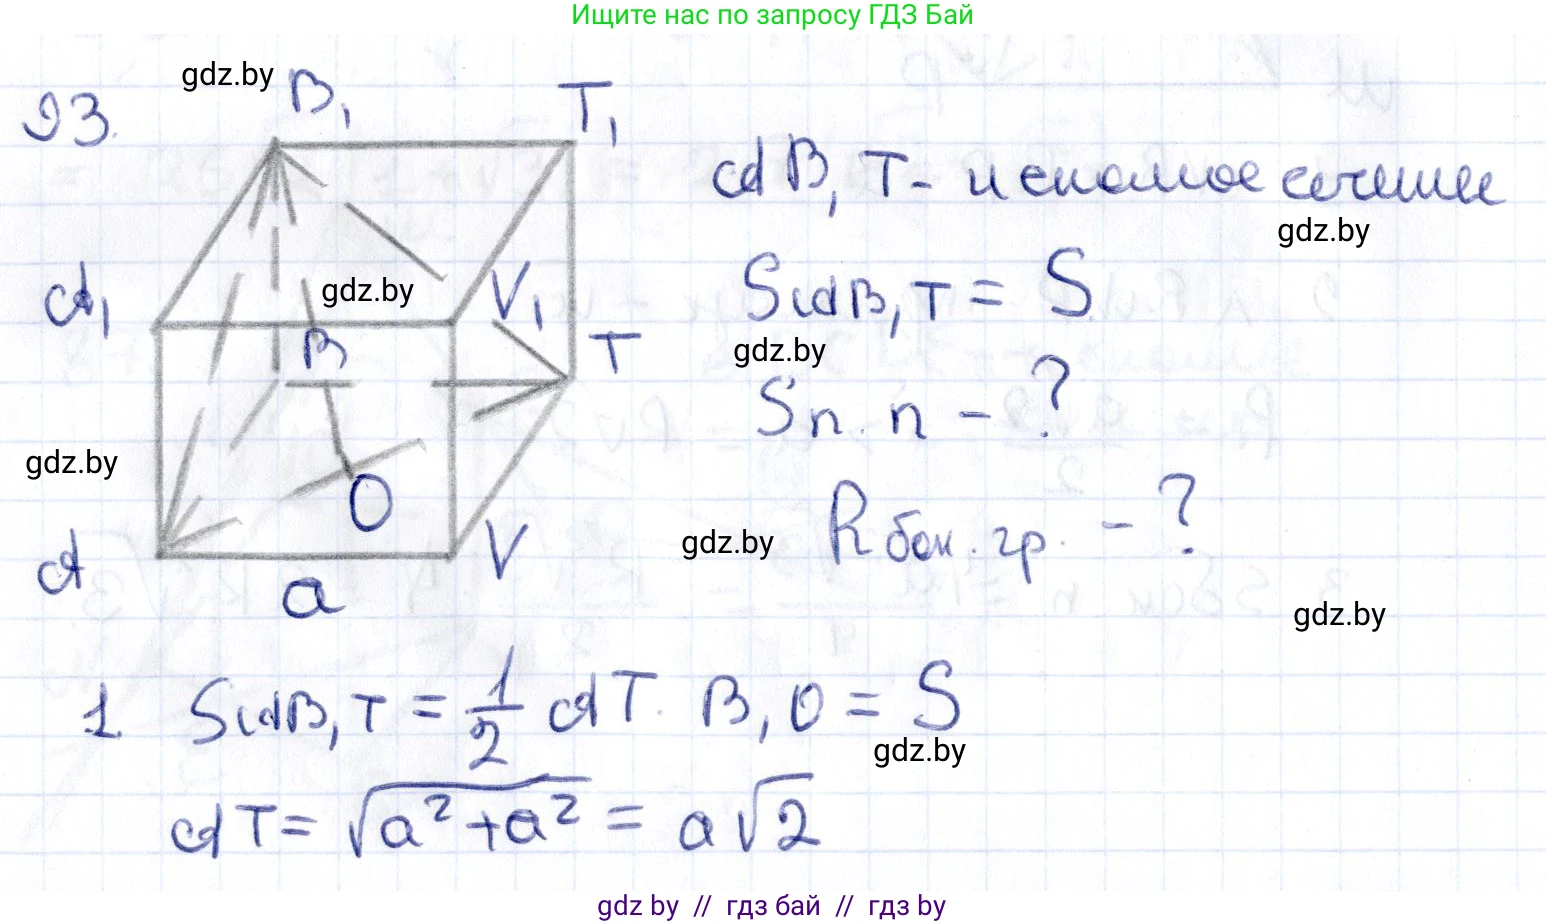 Ищите нас по запросу ГДЗ Бай
gdz.by
93.
B₁
T₁
AB₁T - искомое сечение
gdz.by
A₁
gdz.by
V₁
S AB₁T = S
B
T
gdz.by
Sп.п - ?
gdz.by
O
Rбок.гр. - ?
gdz.by
A
V
a
gdz.by
1. S AB₁T = 1/2 AT · B₁O = S
gdz.by
AT = √(a² + a²) = a√2
gdz.by // гдз бай // гдз by